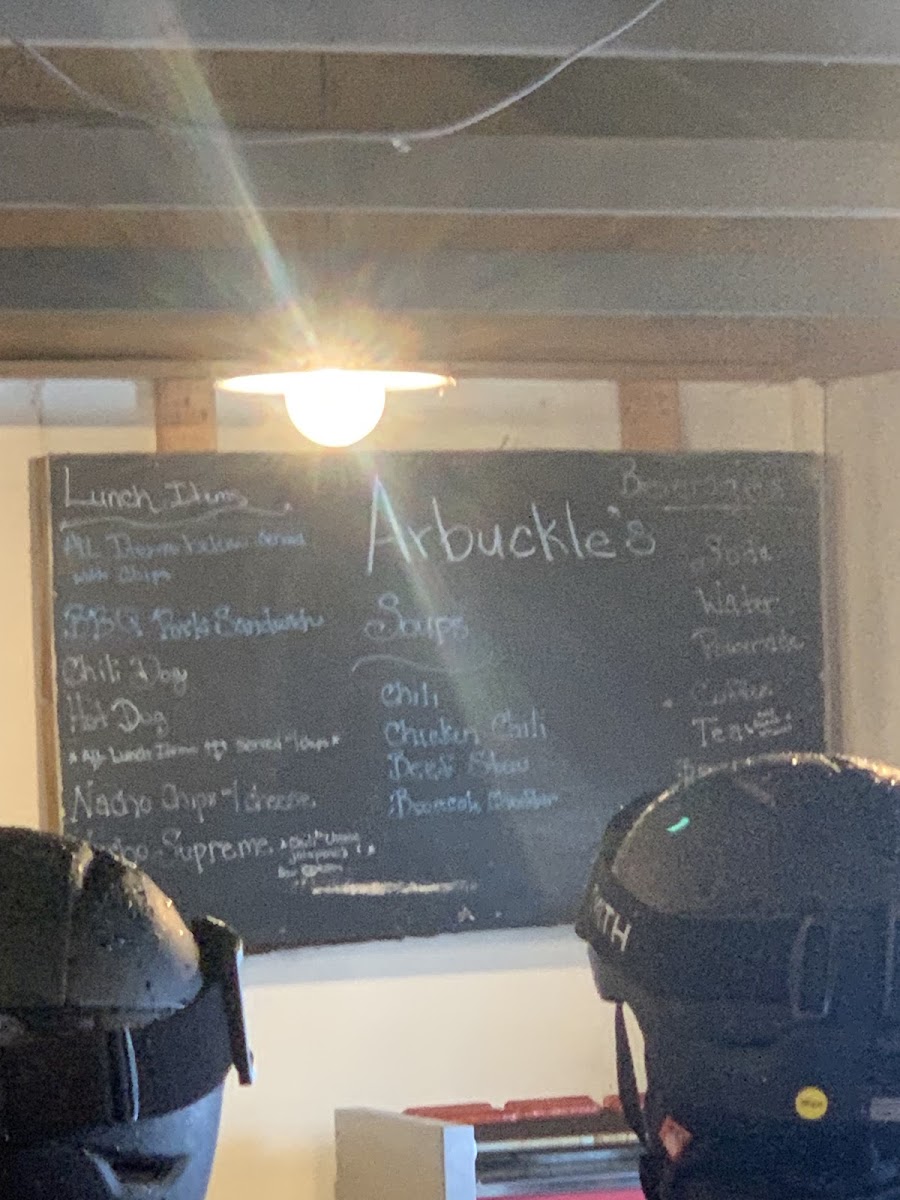 Lunch Items
All Items below served
with chips
BBQ Pork Sandwich
Chili Dog
Hot Dog
* All Lunch Items served w/ chips *
Nacho Chips w/ cheese
Nacho Supreme
Arbuckle's
Soups
Chili
Chicken Chili
Beef Stew
Beverages
Soda
Water
Powerade
Coffee
Tea